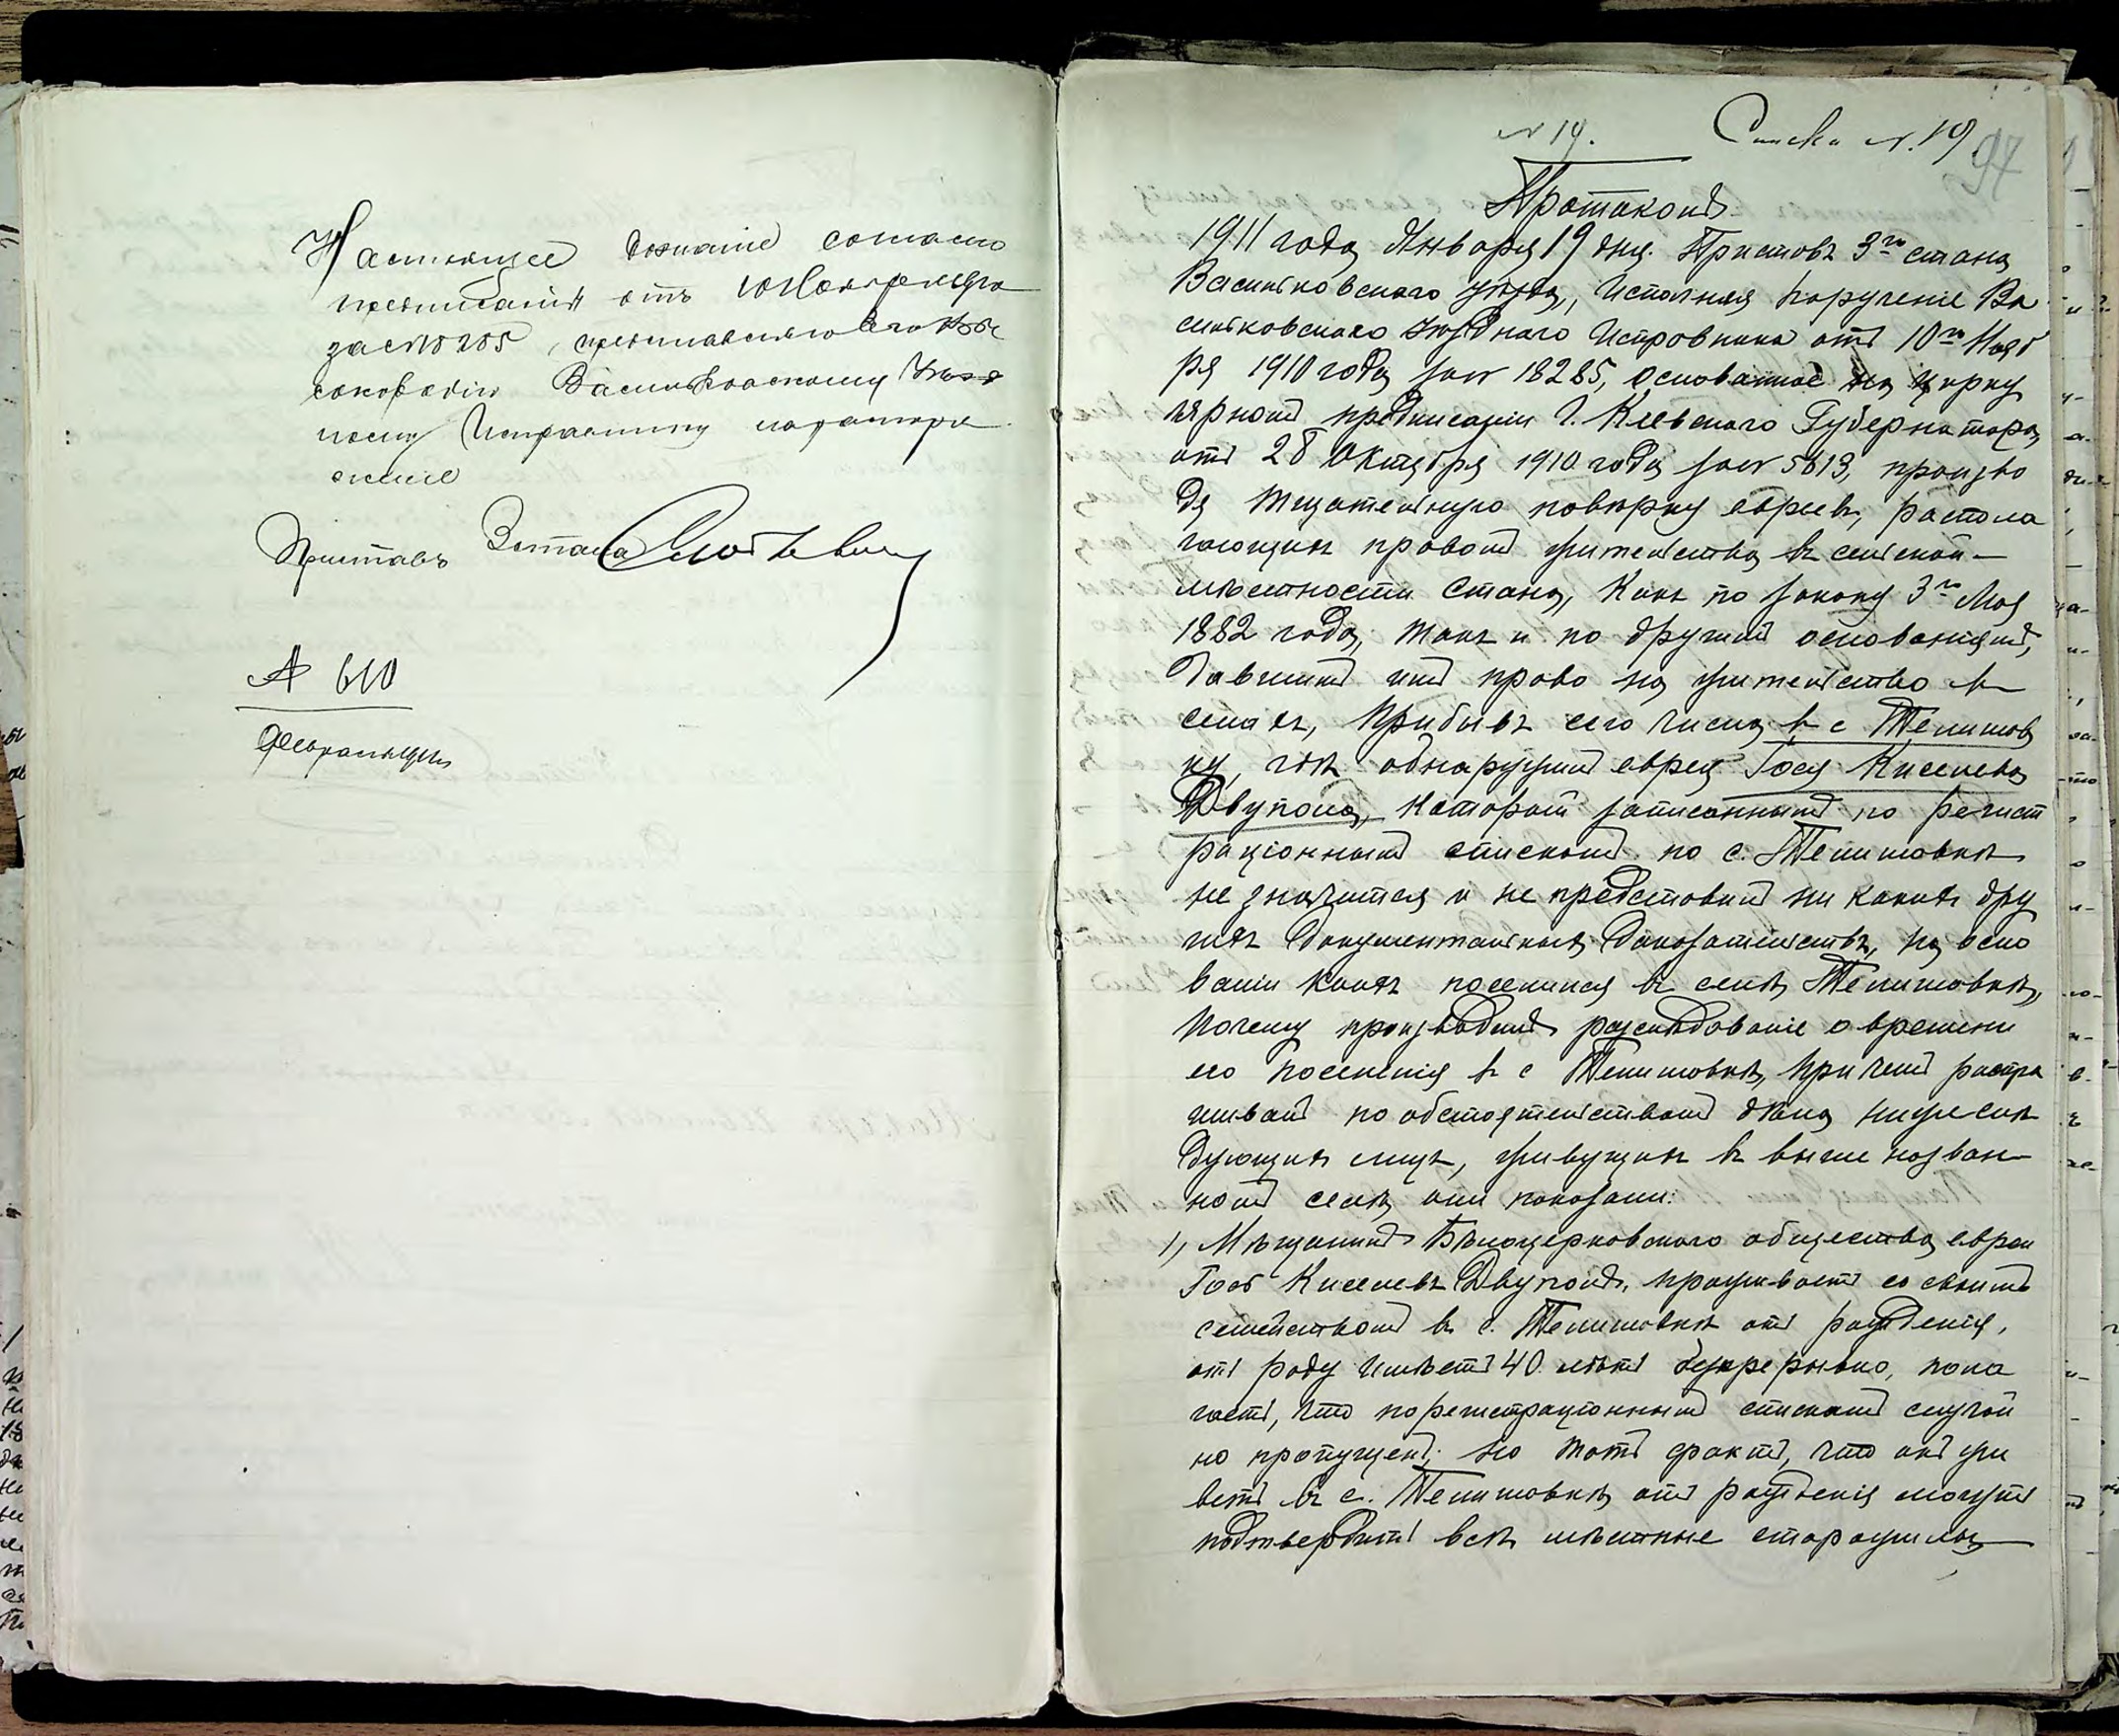 Настоящее дознаніе согласно
предписанія отъ 10 Ноября
за № 18285, представляю Его Высо
скоблагородію Васильковскому Уѣзд
ному Исправнику
Приставъ 3 стана
№ 610
Февраля
№ 19. Списка № 19
97
Протоколъ
1911 года Января 19 дня. Приставъ 3го стана
Васильковского уѣзда, исполняя порученіе Ва
сильковского Уѣзднаго Исправника отъ 10го Нояб
ря 1910 года за № 18285, основанное на цирку
лярномъ предписаніи Г. Кіевского Губернатора
отъ 28 Октября 1910 года за № 5613, произво
дя тщательную повѣрку евреевъ, распола
гающихъ правомъ жительства въ сельской
мѣстности стана, какъ по закону 3го Мая
1882 года, такъ и по другимъ основаніямъ,
давшимъ имъ право на жительство въ
селахъ, прибывъ сего числа въ с Телешов
ку, гдѣ обнаружилъ еврея Іося Киселева
Двупола, который записаннымъ по регист
раціоннымъ спискамъ по с. Телешовкѣ
не значится и не представилъ ни какихъ дру
гихъ документальныхъ доказательствъ, на осно
ваніи коихъ поселился въ селѣ Телешовкѣ,
почему произведено разслѣдованіе о времени
его поселенія въ с Телешовкѣ, при чемъ распра
шивалъ по обстоятельствамъ дѣла нижеслѣ
дующихъ лицъ, живущихъ въ выше назван
номъ селѣ, они показали:
1, Мѣщанинъ Бѣлоцерковского общества еврей
Іось Киселевъ Двуполъ, проживаетъ со своимъ
семействомъ въ с. Телешовкѣ отъ рожденія,
отъ роду имѣетъ 40 лѣтъ безпрерывно, пола
гаетъ, что по регистраціоннымъ спискамъ случай
но пропущенъ; но тотъ фактъ, что онъ жи
ветъ въ с. Телешовкѣ отъ рожденія могутъ
подтвердить всѣ мѣстные старожилы